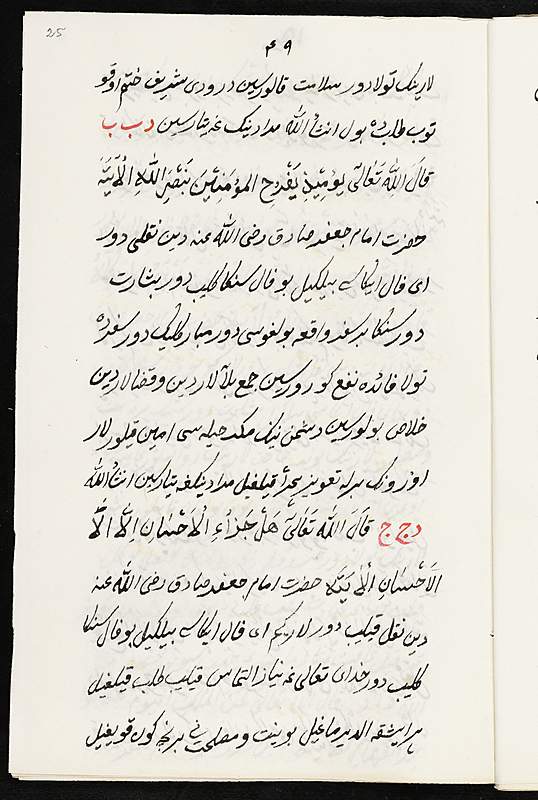 25
۴۹
لارینک تولا دور سلامت قالورسین درودی شریف ختم اوقو
توب طلب ده بول انشاالله مدادینک غه یتارسین د ب ب
قال الله تعالی یومئذ یفرح المؤمنین بنصر الله الآیة
حضرت امام جعفر صادق رضی الله عنه دین نقلی دور
ای فال ایکاسی بیلکیل بو فال سنکا کلیب دور بشارت
دور سنکا بر سفر واقعه بولغوسی دور مبارکلیک دور سفرده
تولا فائده نفع کورورسین جمع بلالاردین و قضالاردین
خلاص بولورسین دشمن نینک مکر حیله سی امین قیلورلار
اوزونک برله تعویز قیلغیل مدادینکغه یتارسین انشاالله
د ج ج قال الله تعالی هل جزاء الاحسان الا
الاحسان حضرت امام جعفر صادق رضی الله عنه
دین نقل قیلیب دورلارکیم ای فال ایکاسی بیلکیل بو فال سنکا
کلیب دور خدای تعالی غه نیاز التماس قیلیب طلب قیلغیل
هر ایشقه الدیرماغیل بو نیت و مصلحت نی بر نچه کون قویغیل